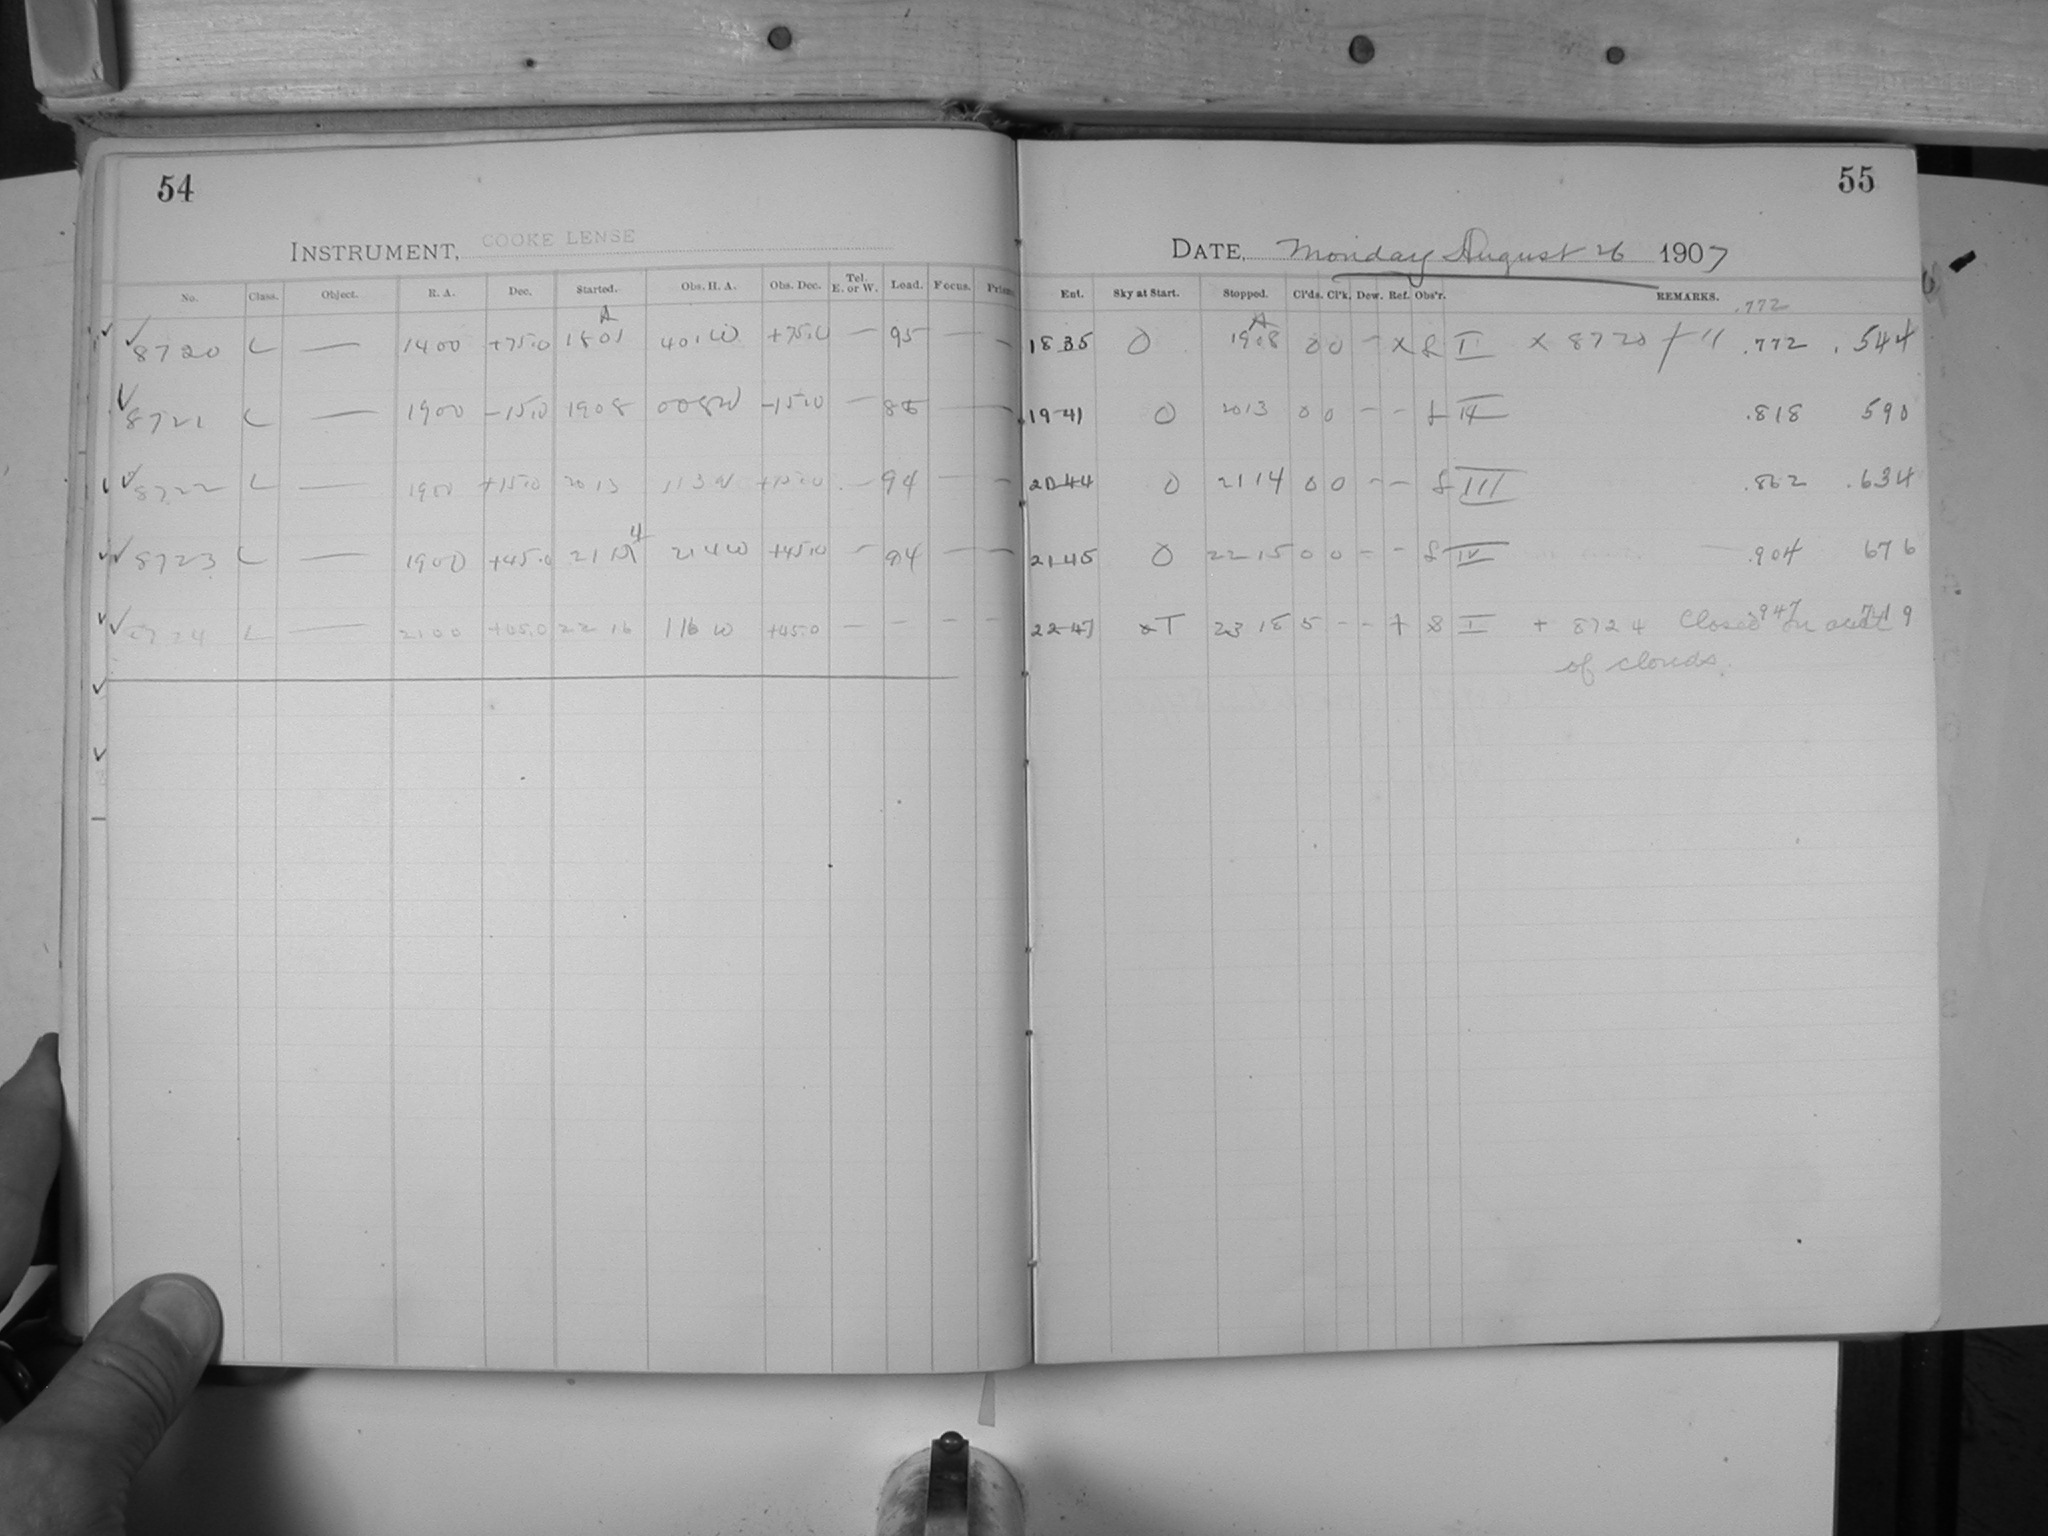 54
INSTRUMENT, COOKE LENSE
No. Class. Object. R. A. Dec. Started. Obs. H. A. Obs. Dec. Tel. E. or W. Load. Focus.
8720 L — 1400 +75.0 1801 401W +75.0 — 95 — —
8721 L — 1900 -15.0 1908 008W -15.0 — — —
8722 L — 1900 +15.0 2013 113W +15.0 — 94 — —
8723 L — 1900 +45.0 21 4 214W +45.0 — 94 — —
8724 L — 2100 +45.0 2216 116W +45.0 — — — —
55
DATE, Monday August 26 1907
Ent. Sky at Start. Stopped. Cl'ds. Cl'k. Dew. Ref. Obs'r. REMARKS.
.772
1835 0 1908 0 0 - x I x 8720 .772 .544
1941 0 2013 0 0 - - .818 590
2044 0 2114 0 0 - - III .862 .634
2145 0 2215 0 0 - - IV .904 676
2247 T 2318 5 - - + I + 8724 Closed on acct .947 719
of clouds.